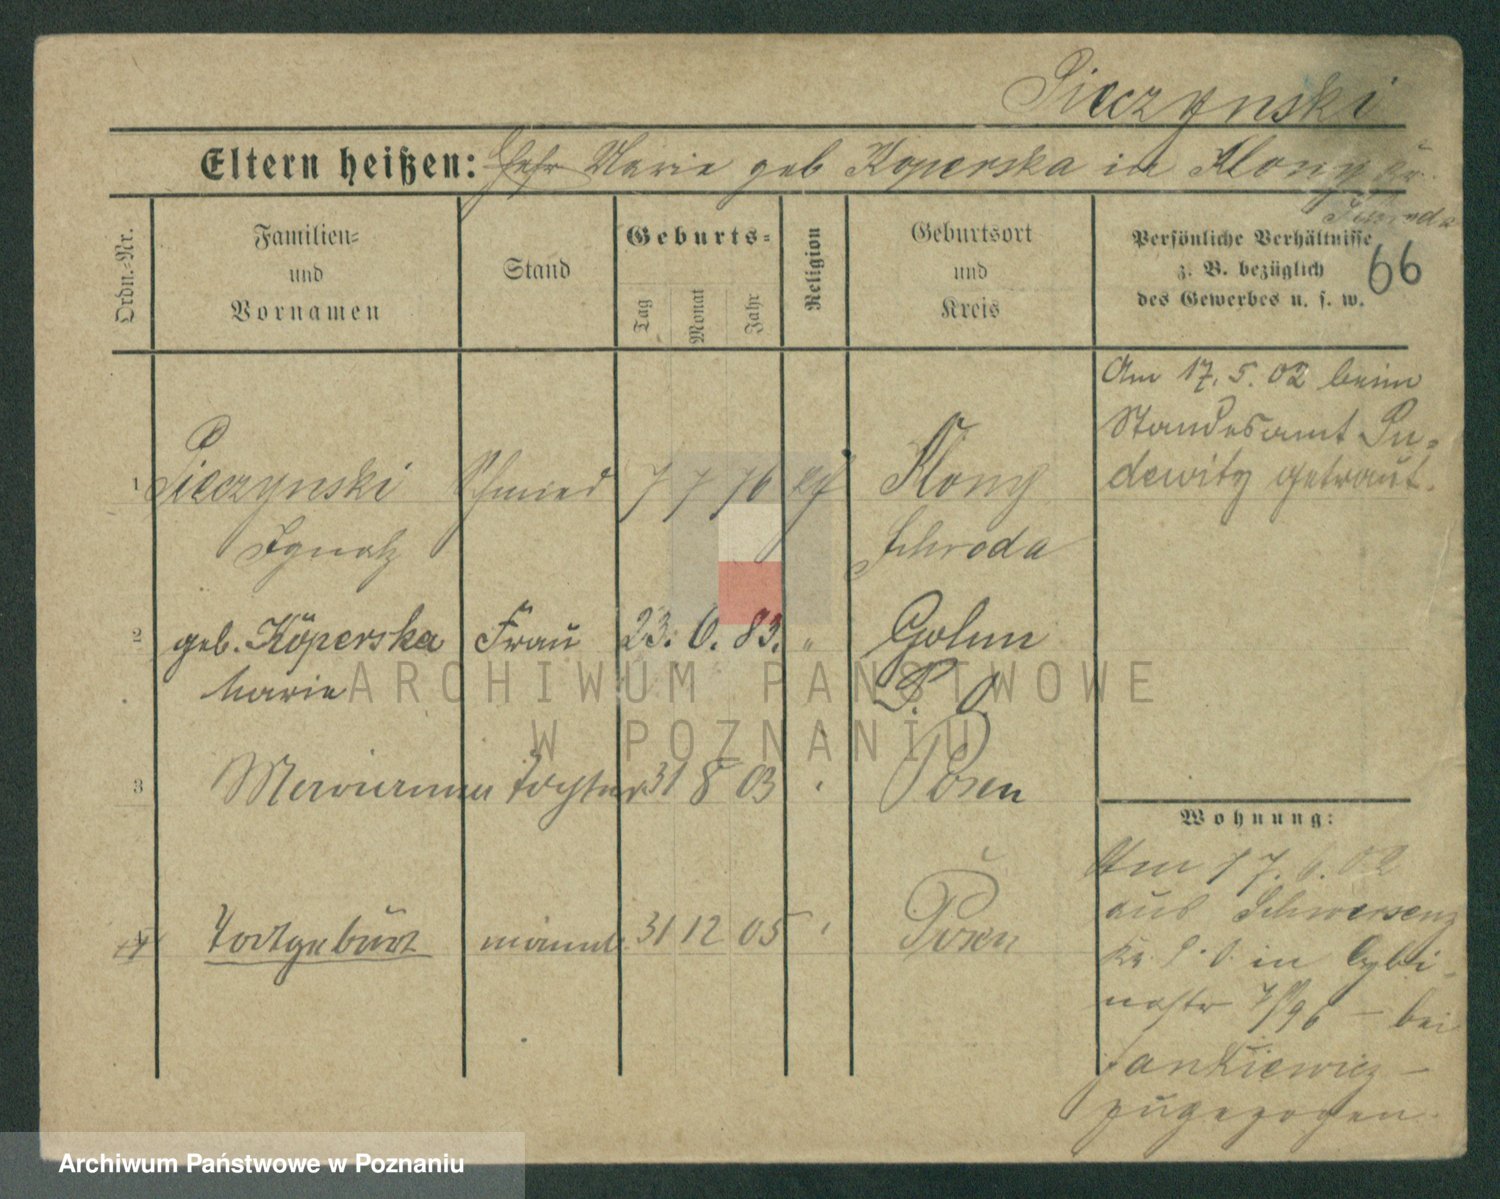 Pieczynski
Eltern heißen: Marie geb Koperska in Klony Kr.
Schroda
Ordn.-Nr.
Familien-
und
Vornamen
Stand
Geburts-
Tag
Monat
Jahr
Religion
Geburtsort
und
Kreis
Persönliche Verhältnisse
z. B. bezüglich
des Gewerbes u. s. w.
66
Am 17. 5. 02 beim
Standesamt Pu-
dewitz getraut.
1 Pieczynski Schmied 7 7 76 kath Klony
Ignatz Schroda
2 geb. Koperska Frau 23. 6. 83. " Golun
Marie P. O.
3 Marianna Tochter 31 8 03 " Posen
4 Totgeburt männl. 31 12 05 " Posen
Wohnung:
Am 17. 6. 02
aus Schwersenz
Kr. P. O. in Cybi-
nastr 7/96 – bei
Jankiewicz –
zugezogen.
ARCHIWUM PAŃSTWOWE
W POZNANIU
Archiwum Państwowe w Poznaniu